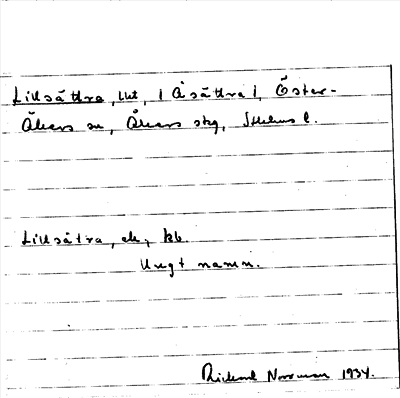 Lillsättra, lht, i Åsättra i, Öster-
Åkers sn, Åkers skg, Sthlms l.
Lillsätra, ek, kb.
Ungt namn.
Rickard Norrman 1934.